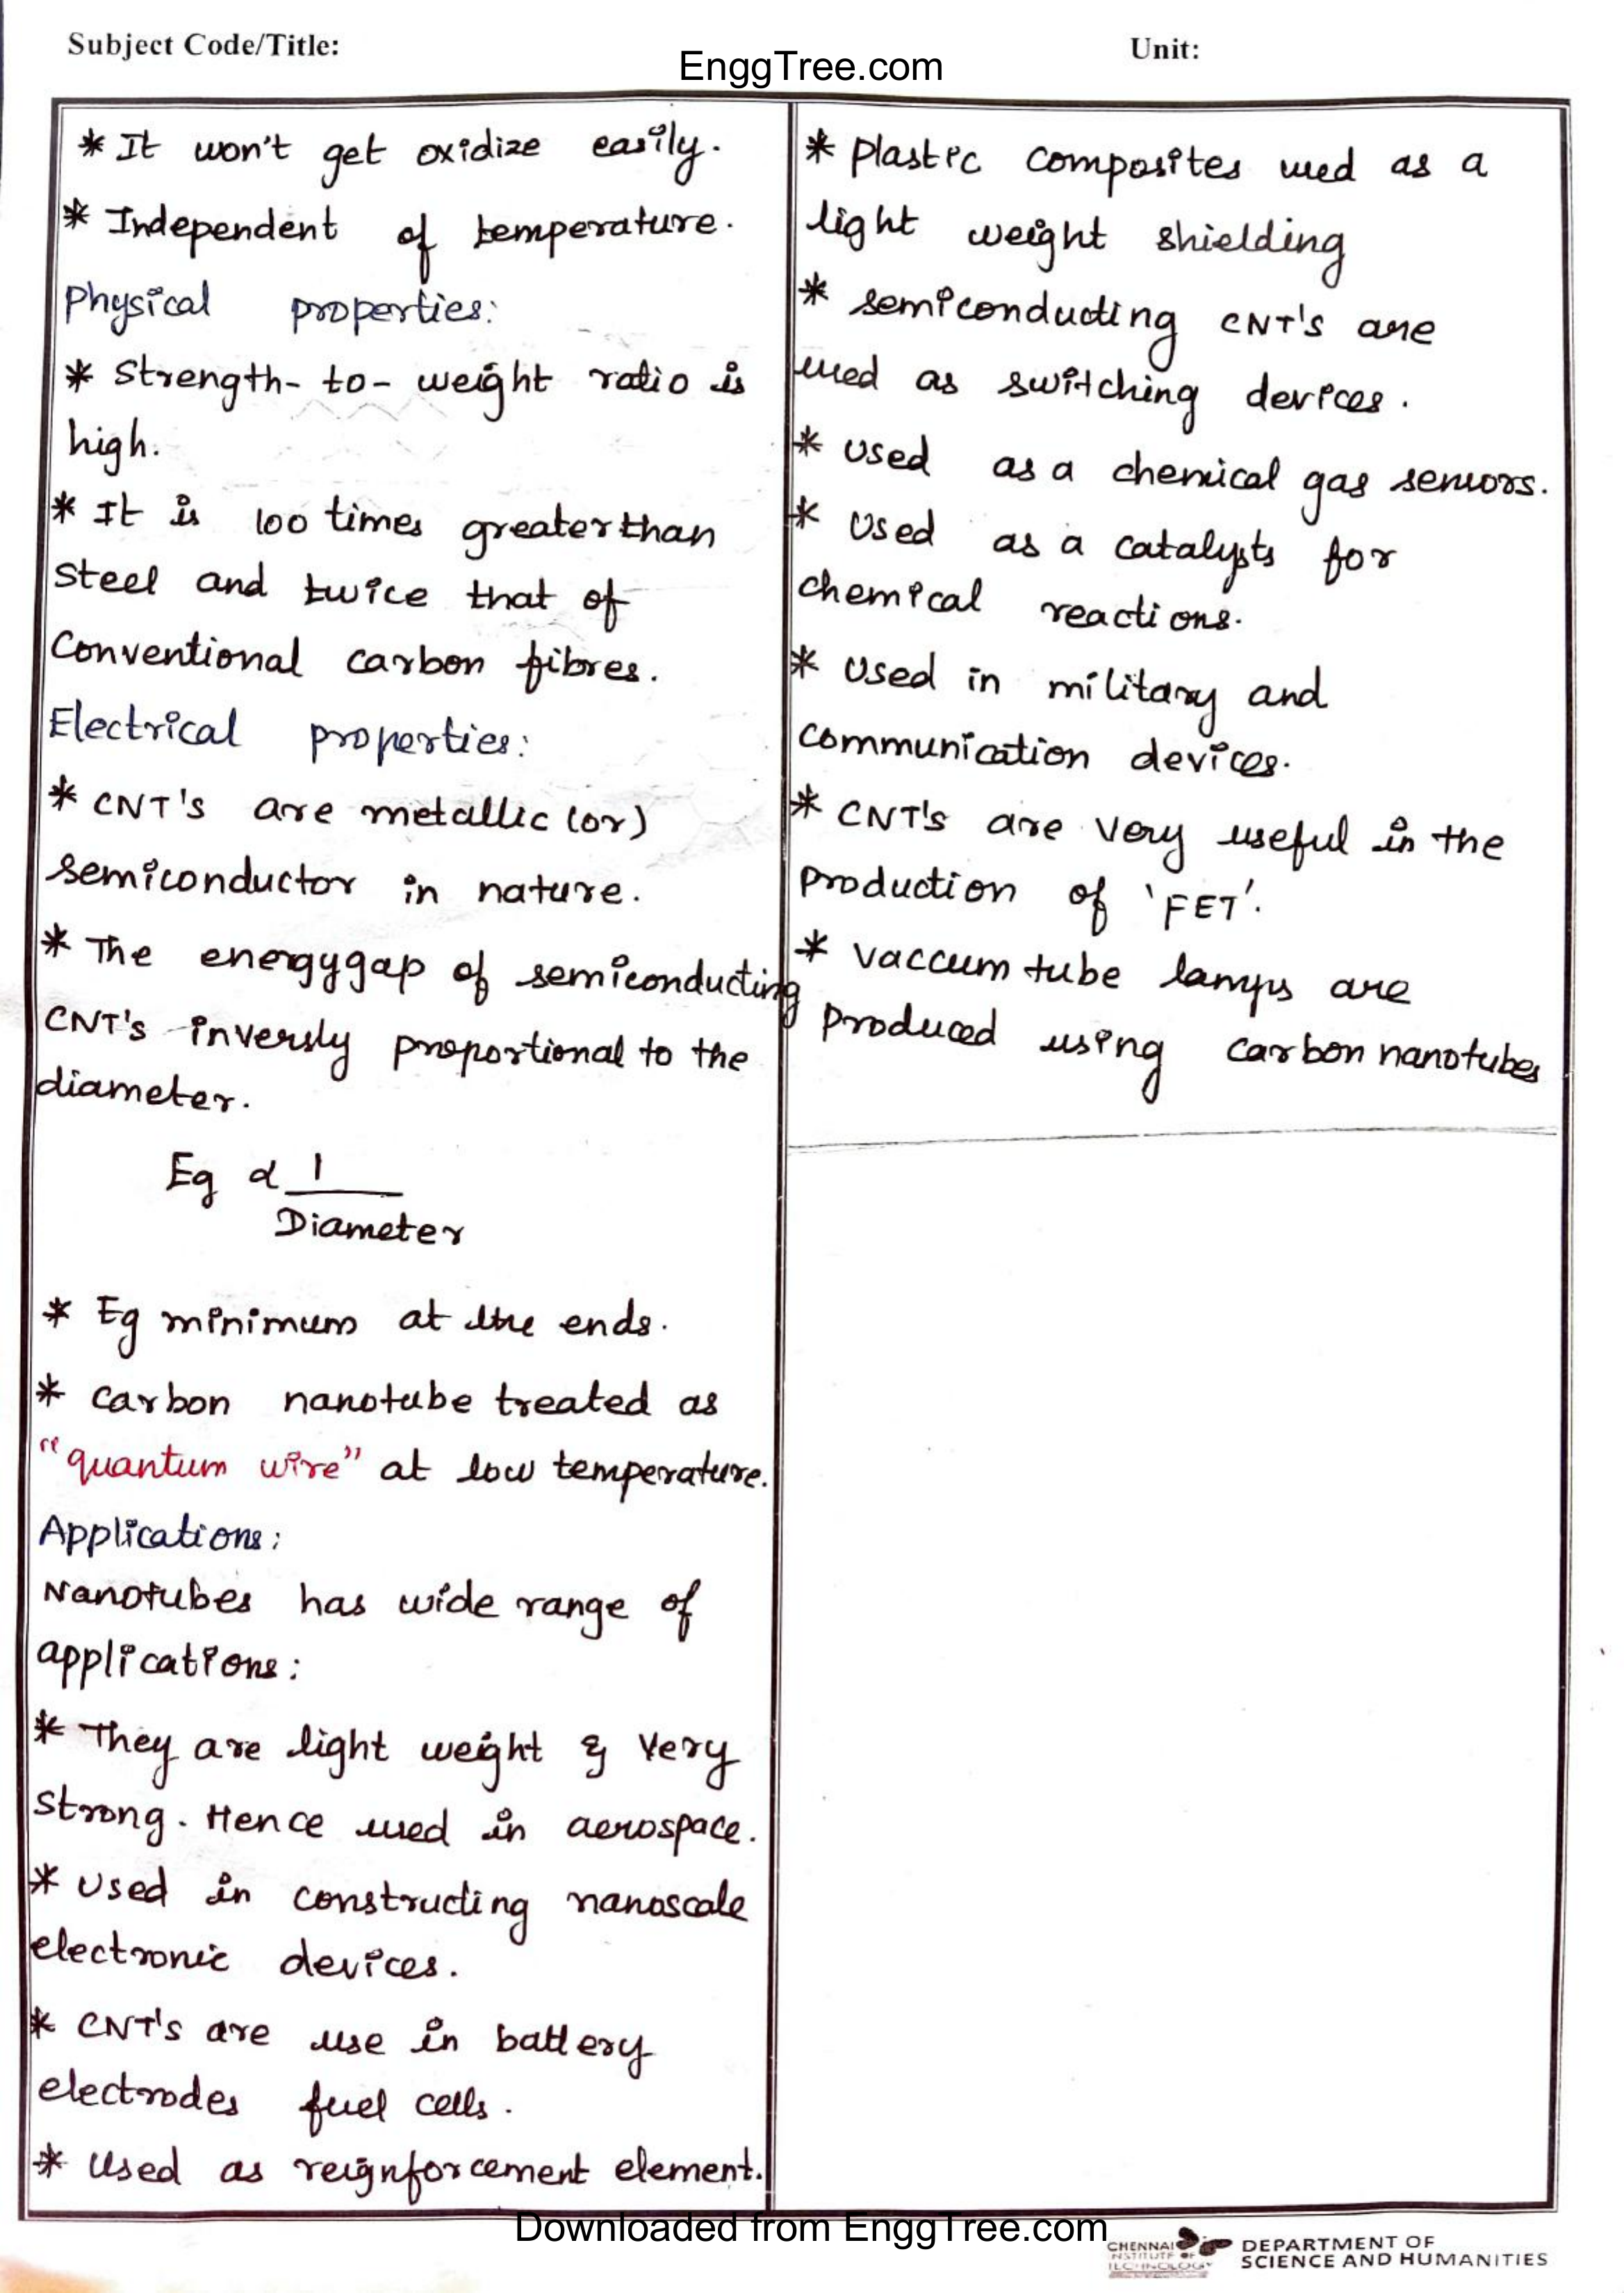 Subject Code/Title:
EnggTree.com
Unit:
* It won't get oxidize easily.
* Independent of temperature.
Physical properties:
* Strength-to-weight ratio is
high.
* It is 100 times greater than
steel and twice that of
Conventional carbon fibres.
Electrical properties:
* CNT's are metallic (or)
semiconductor in nature.
* The energygap of semiconducting
CNT's inversly proportional to the
diameter.
Eg α 1
Diameter
* Eg minimum at the ends.
* Carbon nanotube treated as
"quantum wire" at low temperature.
Applications:
Nanotubes has wide range of
applications:
* They are light weight & very
strong. Hence used in aerospace.
* Used in constructing nanoscale
electronic devices.
* CNT's are use in battery
electrodes fuel cells.
* Used as reignforcement element.
* Plastic composites used as a
light weight shielding
* semiconducting CNT's are
used as switching devices.
* Used as a chemical gas sensors.
* Used as a catalysts for
chemical reactions.
* Used in military and
communication devices.
* CNT's are very useful in the
production of 'FET'.
* vaccum tube lamps are
produced using carbon nanotubes
Downloaded from EnggTree.com
CHENNAI
INSTITUTE OF
TECHNOLOGY
DEPARTMENT OF
SCIENCE AND HUMANITIES